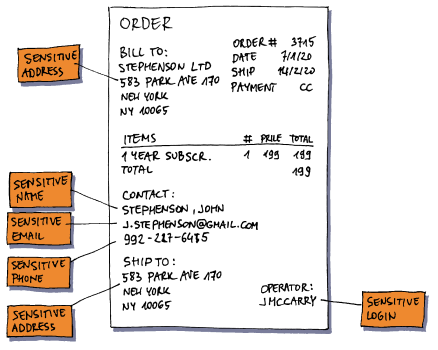 ORDER
BILL TO:
STEPHENSON LTD
583 PARK AVE 170
NEW YORK
NY 10065
ORDER # 3715
DATE 7/1/20
SHIP 14/2/20
PAYMENT CC
SENSITIVE
ADDRESS
ITEMS # PRICE TOTAL
1 YEAR SUBSCR. 1 199 199
TOTAL 199
CONTACT:
STEPHENSON, JOHN
J.STEPHENSON@GMAIL.COM
992-227-6485
SENSITIVE
NAME
SENSITIVE
EMAIL
SENSITIVE
PHONE
SHIP TO:
583 PARK AVE 170
NEW YORK
NY 10065
SENSITIVE
ADDRESS
OPERATOR:
JMCCARRY
SENSITIVE
LOGIN